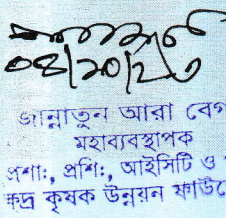 ০৪/১০/২৩
জান্নাতুন আরা বেগ
মহাব্যবস্থাপক
প্রশাঃ, প্রশিঃ, আইসিটি ও
ক্ষুদ্র কৃষক উন্নয়ন ফাউন্ডে